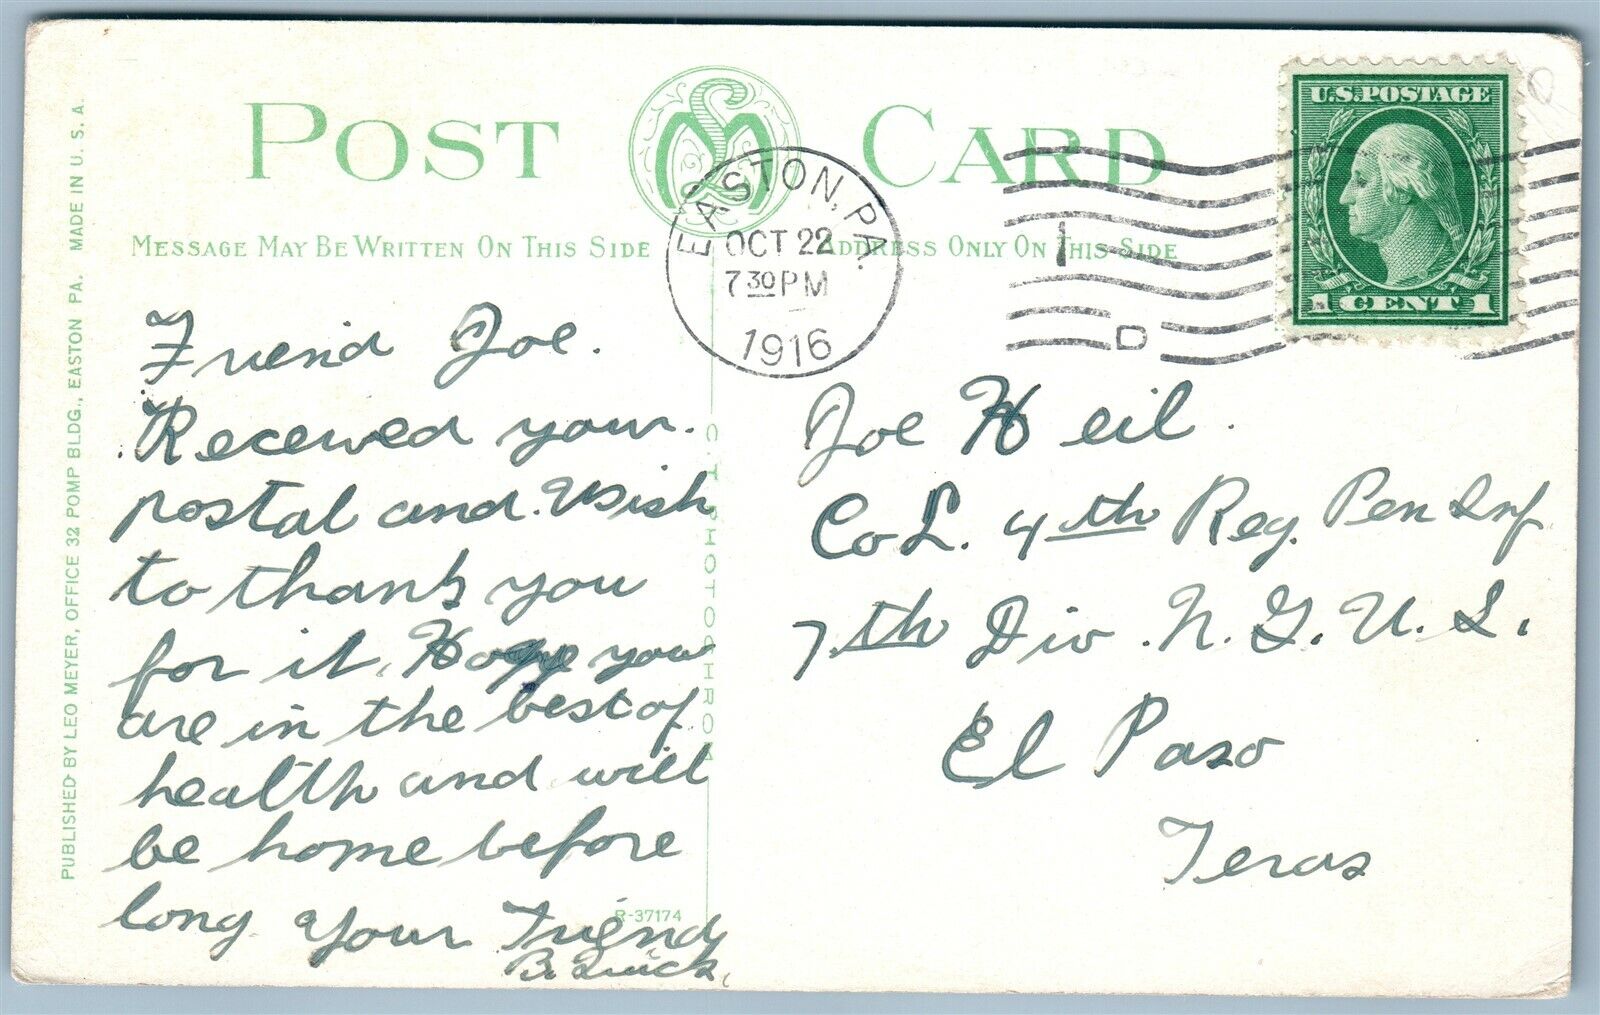 POST CARD
MESSAGE MAY BE WRITTEN ON THIS SIDE
ADDRESS ONLY ON THIS SIDE
EASTON, PA.
OCT 22
7 30 PM
1916
1
D
U.S. POSTAGE
1 CENT 1
Friend Joe.
Received your
postal and wish
to thank you
for it. Hope you
are in the best of
health and will
be home before
long Your Friend
B. Quick.
Joe Heil.
Co L. 4th Reg. Pen Inf
7th Div. N. G. U. S.
El Paso
Texas
PUBLISHED BY LEO MEYER, OFFICE 32 POMP BLDG., EASTON PA. MADE IN U. S. A.
C. T. PHOTOCHROM
R-37174